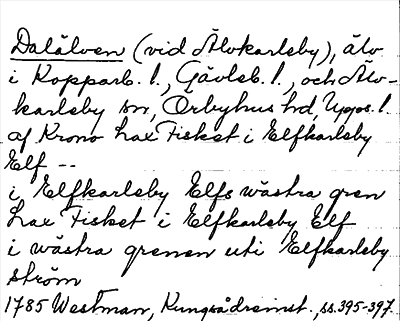 Dalälven (vid Älvkarleby), älv
i Kopparb. l., Gävleb. l., och Älv-
karleby sn, Örbyhus hd, Upps. l.
af Krono Lax Fisket i Elfkarleby
Elf --
i Elfkarleby Elfs wästra gren
Lax Fisket i Elfkarleby Elf
i wästra grenen uti Elfkarleby
ström
1785 Westman, Kungsådreinst., ss. 395-397.